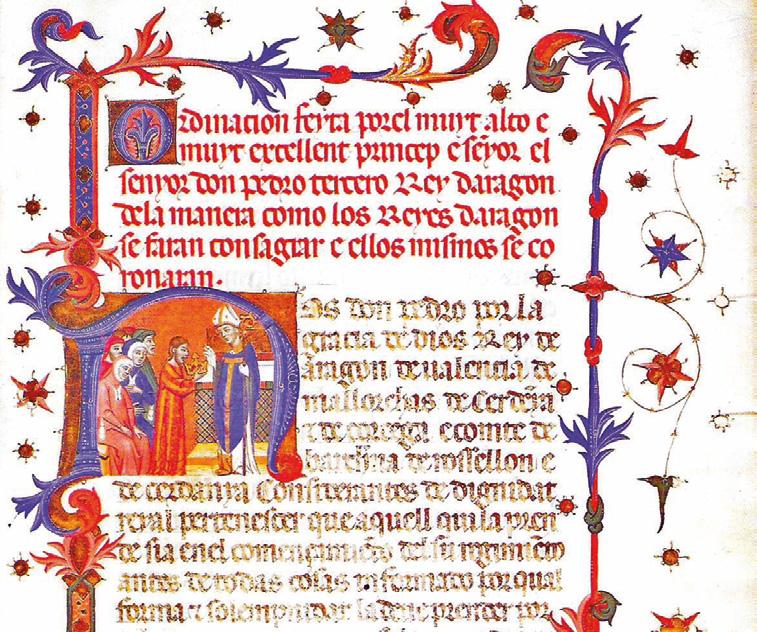 Ordinacion feyta por el muyt alto e
muyt excellent princep e seyor el
senyor don pedro tercero Rey daragon
dela manera como los Reyes daragon
se faran consagrar e ellos mismos se co
ronaran.
Nos don pedro por la
gracia de dios Rey de
aragon de ualencia de
mallorchas de Cerdeya
e de corcega e comte de
barchna de rossellon e
de cerdanya Considerantes de dignidat
reyal pertenescer que aquell qui la pren
de sia en el començamiento del su regimiento
antes de todas cosas informado por qual
forma e solempnidat la deue prender por